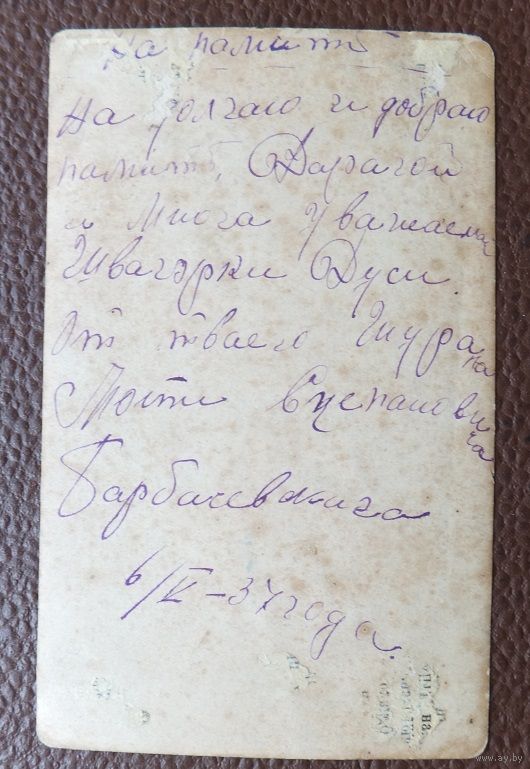 На памить
На долгаю и добраю
памить, Дарагой
и Многа уважаемай
Швагэрки Дуси.
От тваего Шурана
Моти Сцепанавича
Барбачевскага
6/V-37 года.
www.ay.by